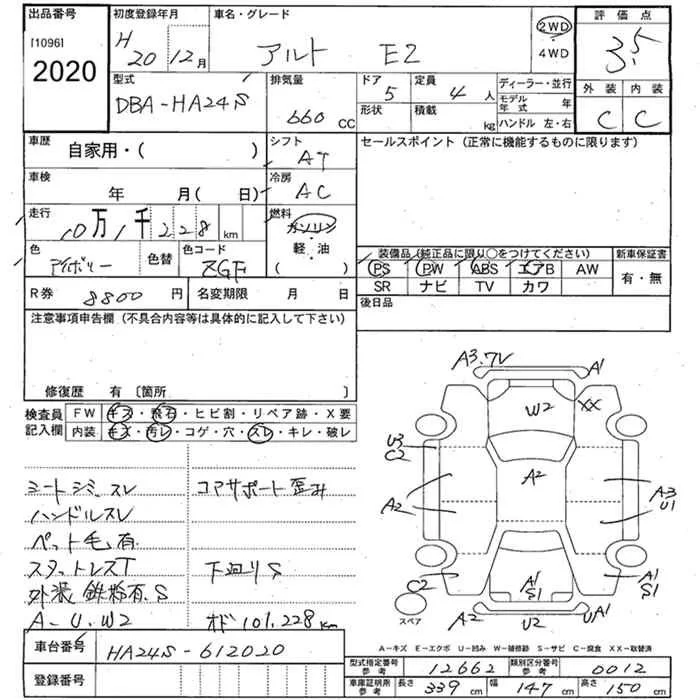 出品番号 初度登録年月 車名・グレード 評価点
[1096] 2020 H20 12月 アルト E2 2WD 3.5
4WD
外装 内装
型式 排気量 ドア 定員 ディーラー・並行 C C
DBA-HA24S 660 CC 5 4人 モデル年式 年
形状 積載 kg ハンドル 左・右
車歴 シフト セールスポイント (正常に機能するものに限ります)
自家用・( ) AT
車検 冷房
年 月( 日) AC
走行 燃料
10万1千228km ガソリン
色 色替 色コード 軽・油 装備品 (純正品に限り○をつけてください) 新車保証書
アイボリー ZGF ( ) PS PW ABS エアB AW 有・無
SR ナビ TV カワ
R券 8800円 名変期限 月 日 後日品
注意事項申告欄 (不具合内容等は具体的に記入して下さい)
修復歴 有 〔箇所 〕
検査員 FW キズ・飛石・ヒビ割・リペア跡・X要
記入欄 内装 キズ・汚レ・コゲ・穴・スレ・キレ・破レ
A3.7V A1
W2 XX
U3
C2
A2 A2 A3
U1
C2 A1
S1 A1
S1
スペア A2 U2 UA1
シートシミ.スレ コアサポート歪み
ハンドルスレ
ペット毛有
スタットレスT 下廻りS
外装 鉄粉有.S
A-U.W2 オド101,228km
A-キズ E-エクボ U-凹み W-補修跡 S-サビ C-腐食 XX-取替済
車台番号 HA24S-612020
型式指定番号 参考 12662 類別区分番号 参考 0012
登録番号 車庫証明用 参考 長さ 339cm 幅 147cm 高さ 150cm